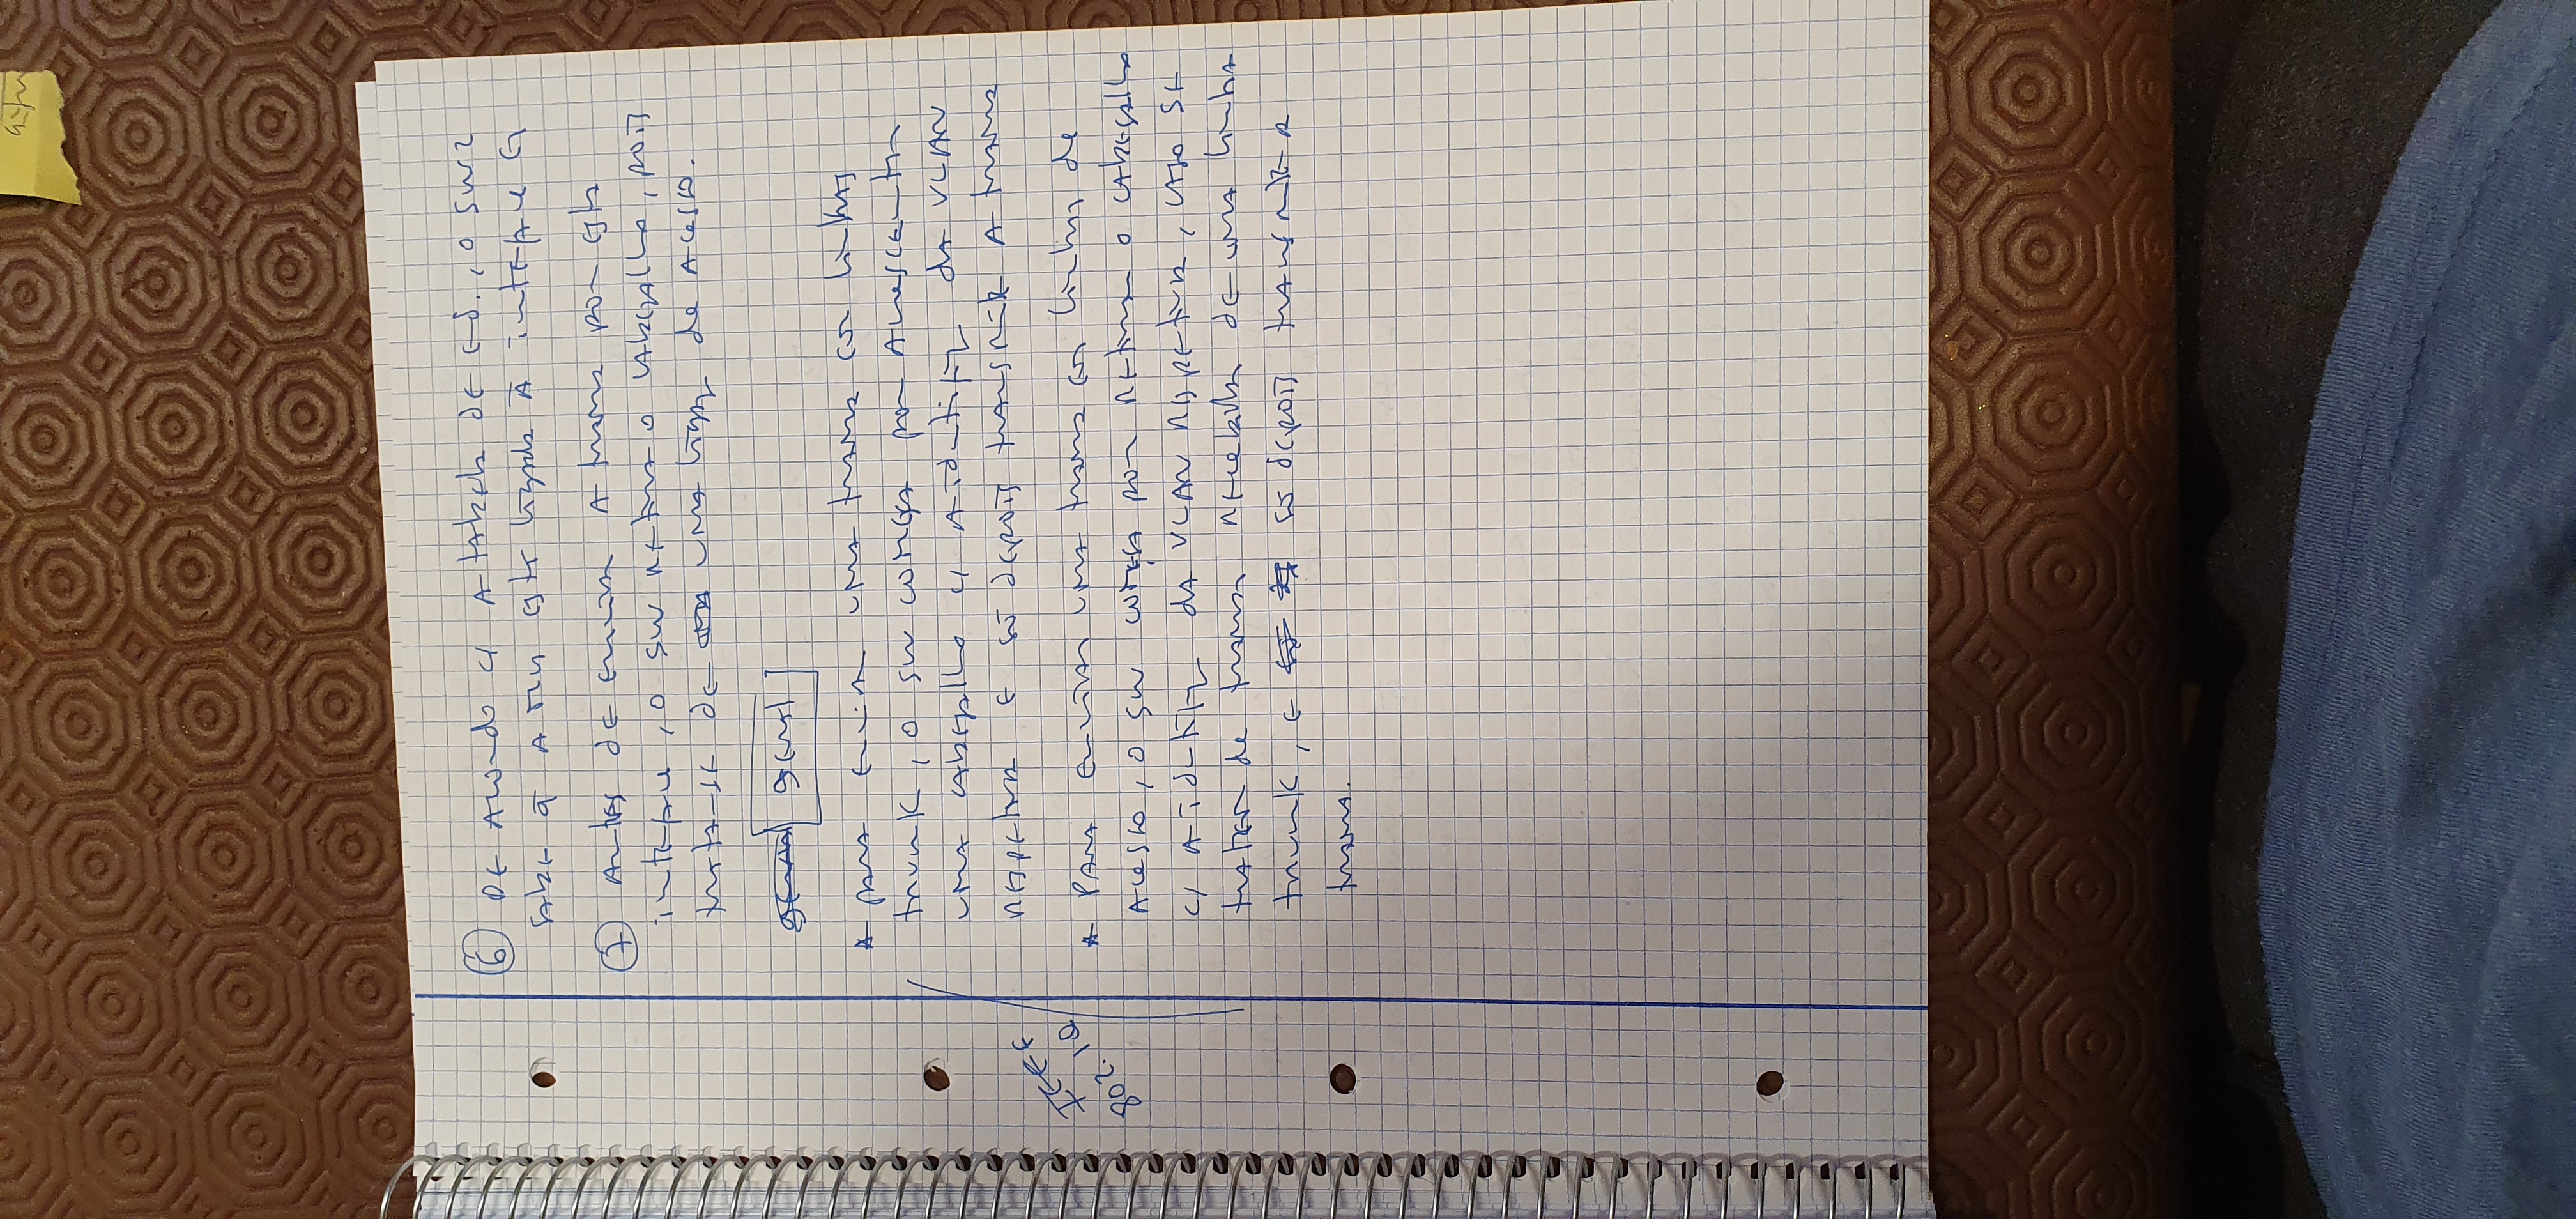 ⑥ DE Acordo c/ A tabela DE ED., o SW2
sabe q̄ A está ligada À interface G
⑦ Antes DE enviar A trama por esta
interface, o SW retira o cabeçalho, pois
trata-se DE uma ligaç de Acesso.
geral
* para enviar uma trama com linhas
trunk, o SW começa por Acrescentar
uma cabeçalho c/ A identifiç da VLAN
respetiva E só depois transmite A trama
IEEE
802.1Q
* PARA enviar uma trama com linhas de
Acesso, o SW começa por retirar o cabeçalho
c/ A identifiç da VLAN respetiva, caso se
tratem de tramas recebidas DE uma linha
trunk, E só depois transmite a
trama.